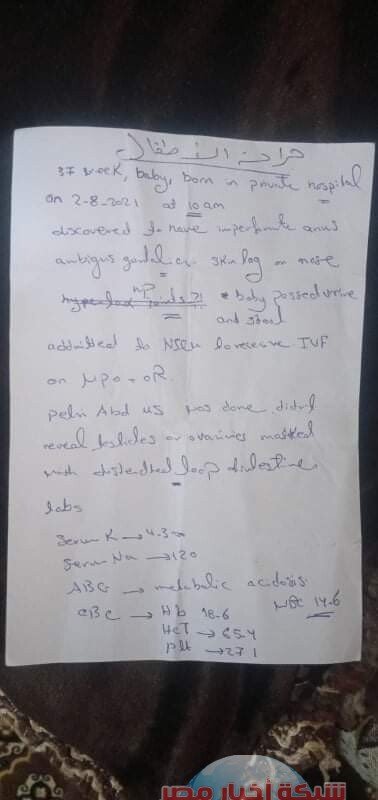 جراحة الأطفال
37 week, baby, born in private hospital
on 2-8-2021 at 10 am
discovered to have imperforate anus
ambigus gentalia. skin tag on nose
* baby passed urine
and stool
addmitted to NICU to receive IVF
on NPO + OR.
pelvi Abd US was done didn't
reveal testicles or ovarines masked
with distended loop intestine
labs
Serum K → 4.3
Serum Na → 120
ABG → metabolic acidosis
CBC → Hb 18.6 WBC 14.6
HCT → 65.4
Plt → 271
شبكة أخبار مصر